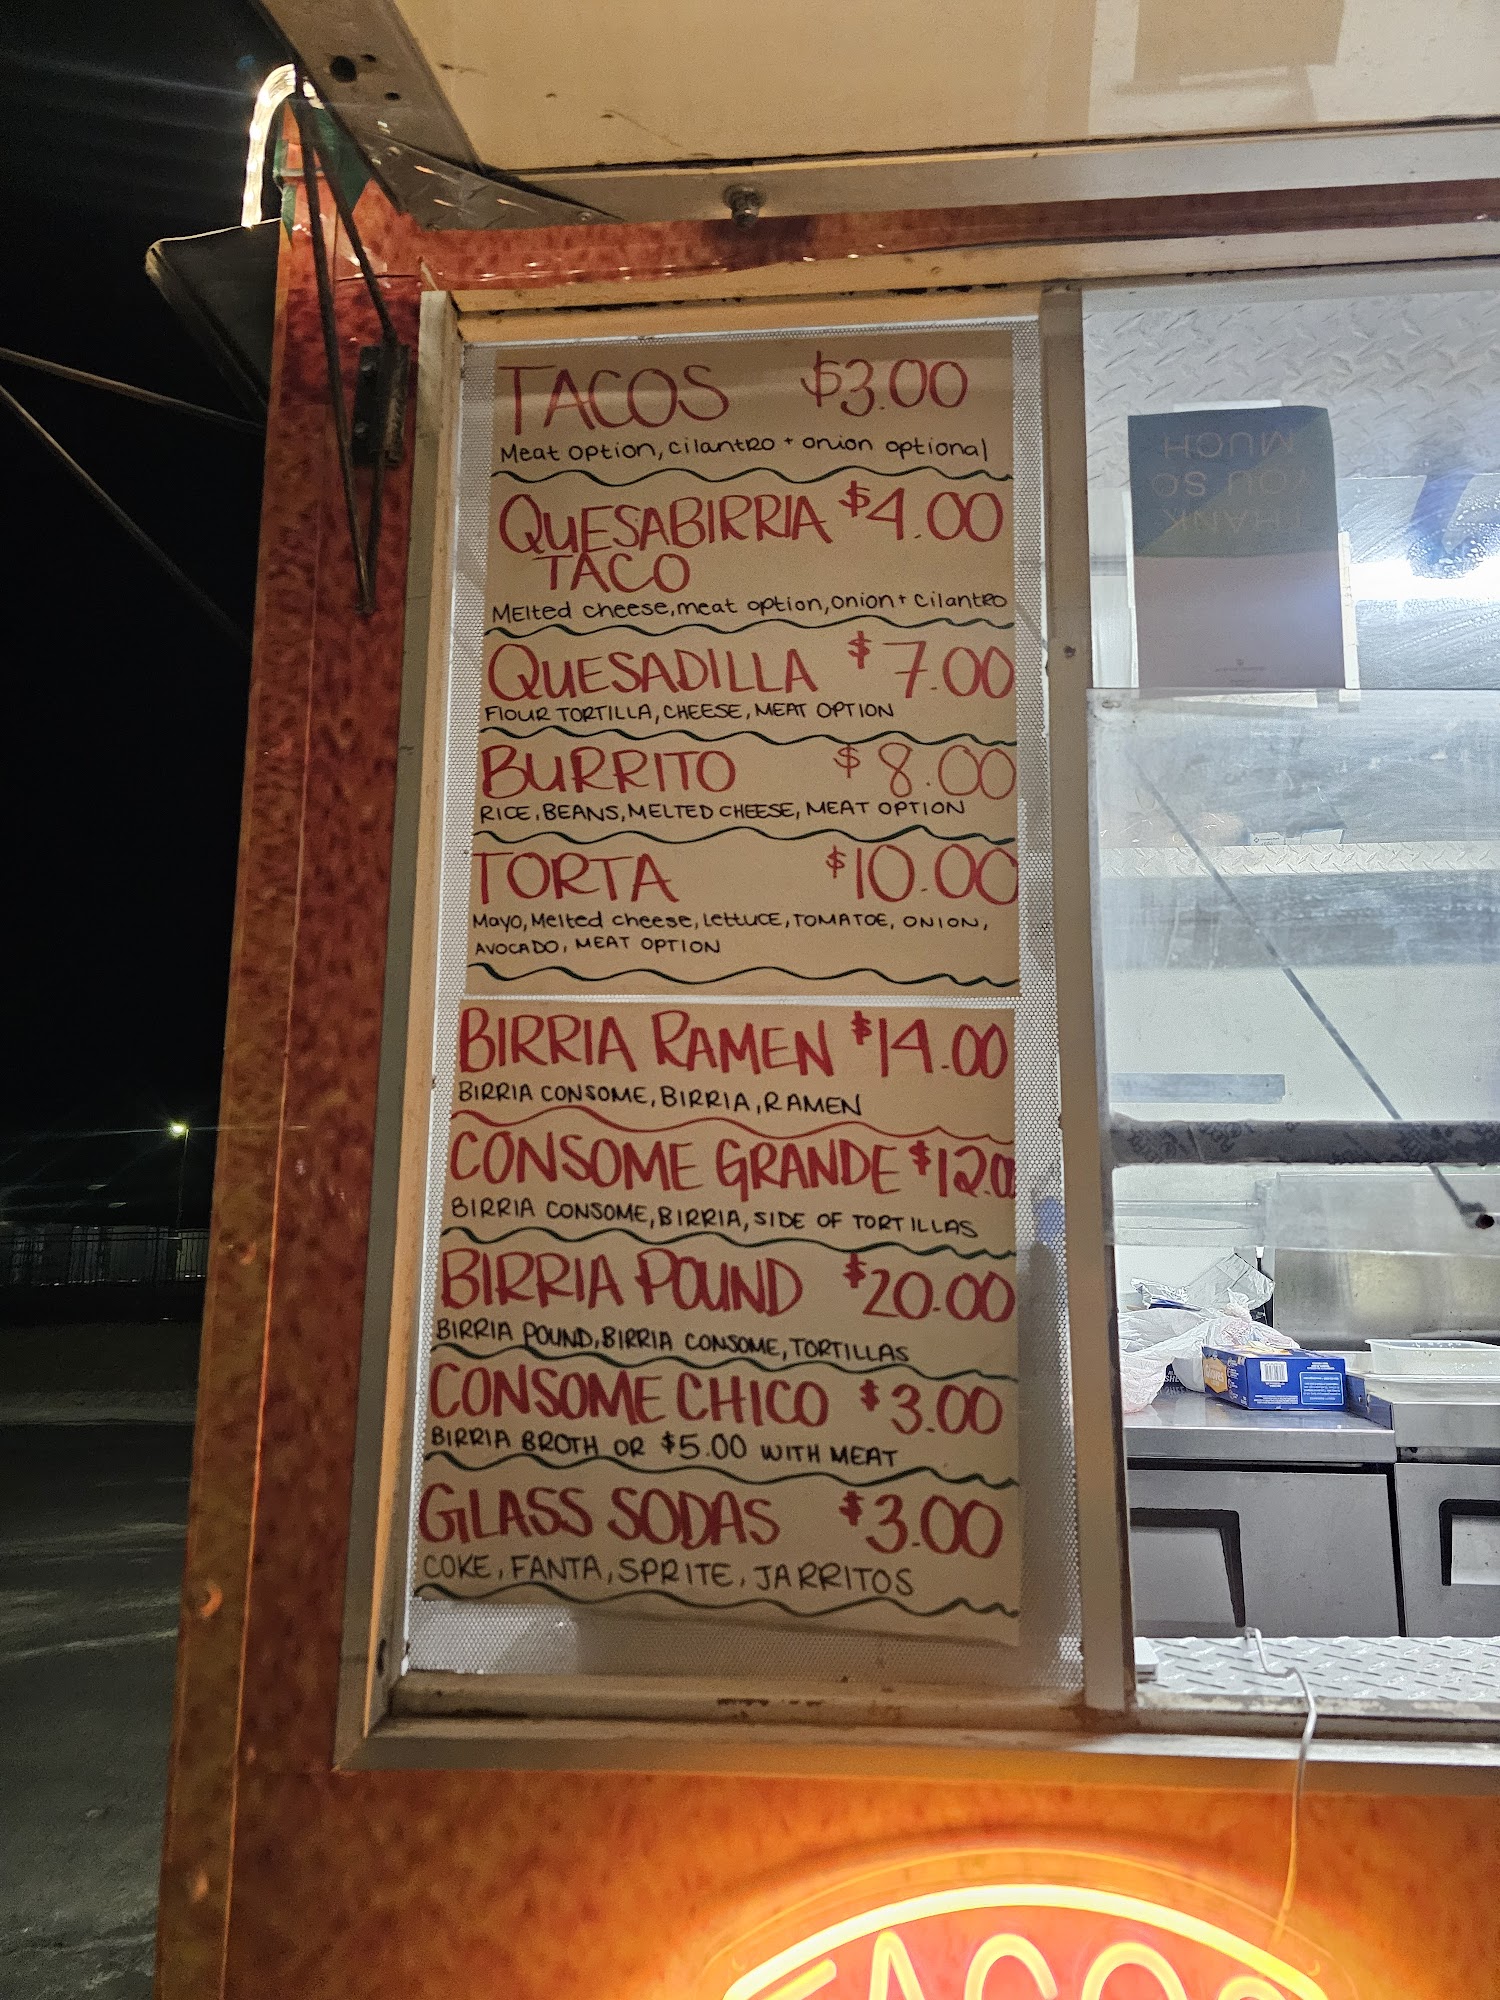 TACOS $3.00
Meat option, cilantro + onion optional
QUESABIRRIA $4.00
TACO
Melted cheese, meat option, onion + cilantro
QUESADILLA $7.00
FlOUR TORTILLA, CHEESE, MEAT OPTION
BURRITO $8.00
RICE, BEANS, MELTED CHEESE, MEAT OPTION
TORTA $10.00
Mayo, Melted cheese, Lettuce, TOMATOE, ONION,
AVOCADO, MEAT OPTION
BIRRIA RAMEN $14.00
BIRRIA CONSOME, BIRRIA, RAMEN
CONSOME GRANDE $12.0
BIRRIA CONSOME, BIRRIA, SIDE OF TORTILLAS
BIRRIA POUND $20.00
BIRRIA POUND, BIRRIA CONSOME, TORTILLAS
CONSOME CHICO $3.00
BIRRIA BROTH OR $5.00 WITH MEAT
GLASS SODAS $3.00
COKE, FANTA, SPRITE, JARRITOS
THANK
YOU SO
MUCH
Gloves
TACOS